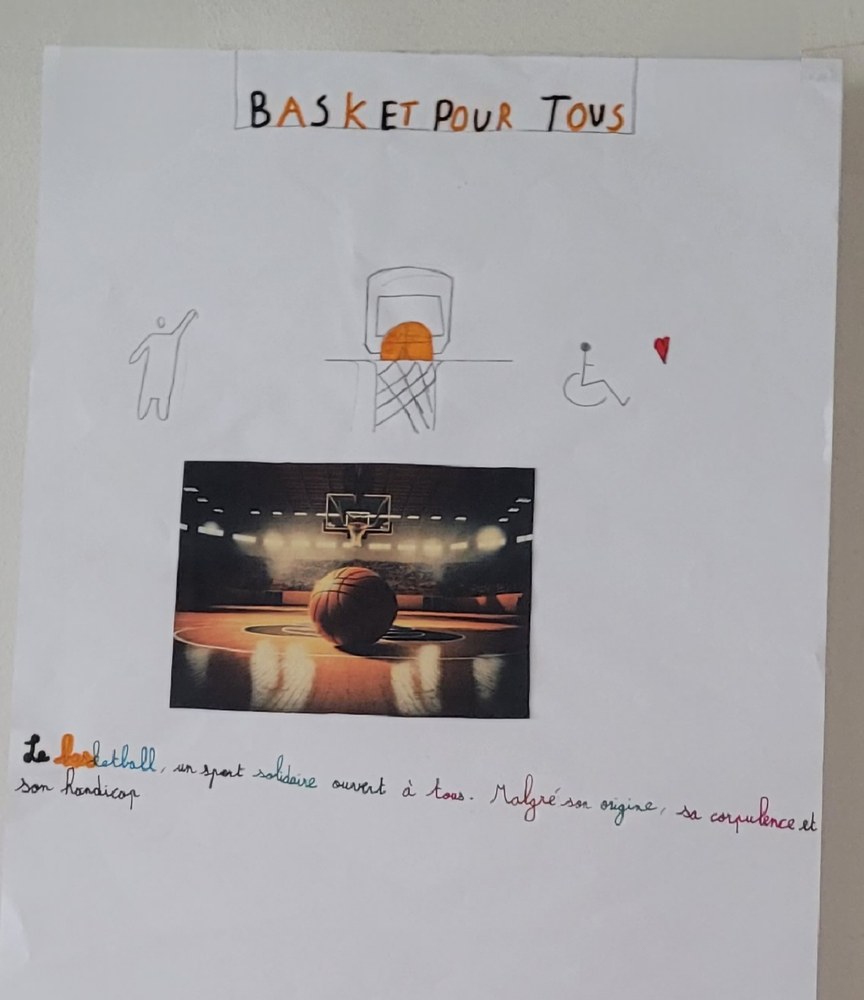 BASKET POUR TOUS
Le basketball, un sport solidaire ouvert à tous. Malgré son origine, sa corpulence et
son handicap